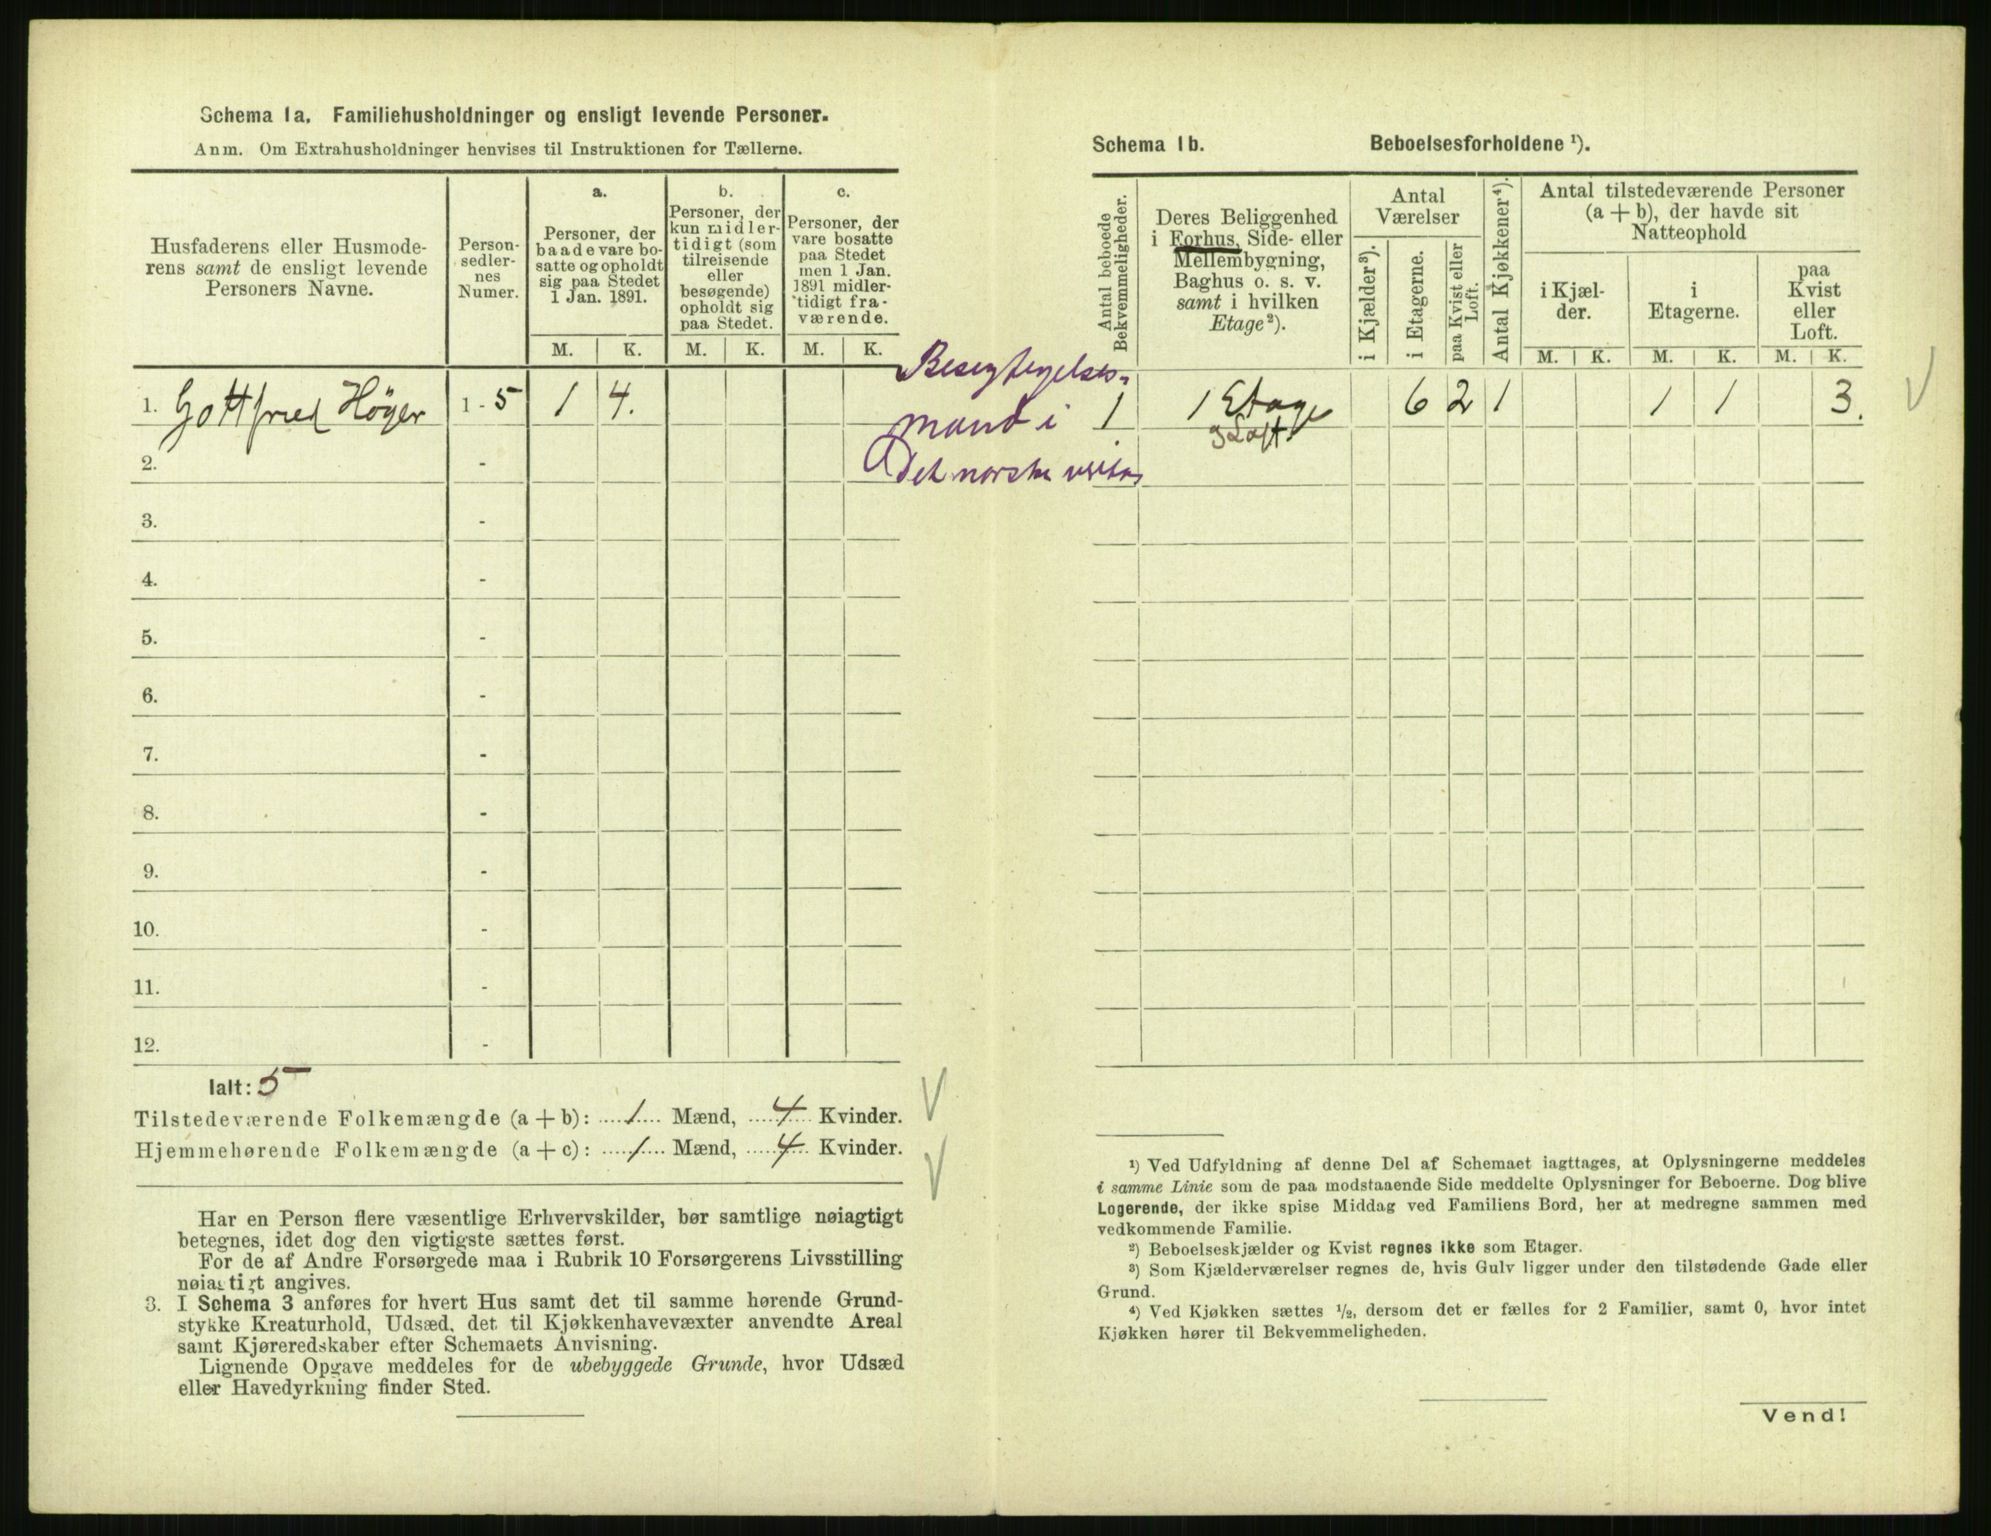 Schema 1a. Familiehusholdninger og ensligt levende Personer.
Anm. Om Extrahusholdninger henvises til Instruktionen for Tællerne.
Husfaderens eller Husmode-
rens samt de ensligt levende
Personers Navne.
Person-
sedler-
nes
Numer.
a.
Personer, der
baade vare bo-
satte og opholdt
sig paa Stedet
1 Jan. 1891.
M. K.
b.
Personer, der
kun midler-
tidigt (som
tilreisende
eller
besøgende)
opholdt sig
paa Stedet.
M. K.
c.
Personer, der
vare bosatte
paa Stedet
men 1 Jan.
1891 midler-
tidigt fra-
værende.
M. K.
1. Gottfried Höyer 1 - 5 1 4.
2. -
3. -
4. -
5. -
6. -
7. -
8. -
9. -
10. -
11. -
12. -
Ialt: 5
Tilstedeværende Folkemængde (a + b): 1 Mænd, 4 Kvinder.
Hjemmehørende Folkemængde (a + c): 1 Mænd, 4 Kvinder.
Har en Person flere væsentlige Erhvervskilder, bør samtlige nøiagtigt
betegnes, idet dog den vigtigste sættes først.
For de af Andre Forsørgede maa i Rubrik 10 Forsørgerens Livsstilling
nøiagtigt angives.
3. I Schema 3 anføres for hvert Hus samt det til samme hørende Grund-
stykke Kreaturhold, Udsæd, det til Kjøkkenhavevæxter anvendte Areal
samt Kjøreredskaber efter Schemaets Anvisning.
Lignende Opgave meddeles for de ubebyggede Grunde, hvor Udsæd
eller Havedyrkning finder Sted.
mand i
Det norske
Schema 1b. Beboelsesforholdene ¹).
Antal beboede
Bekvemmeligheder.
Deres Beliggenhed
i Forhus, Side- eller
Mellembygning,
Baghus o. s. v.
samt i hvilken
Etage²).
Antal
Værelser
i Kjælder³).
i Etagerne.
paa Kvist eller
Loft.
Antal Kjøkkener⁴).
Antal tilstedeværende Personer
(a + b), der havde sit
Natteophold
i Kjæl-
der.
M. K.
i
Etagerne.
M. K.
paa
Kvist
eller
Loft.
M. K.
1 1 Etage 6 2 1 1 1 3.
g Loft
¹) Ved Udfyldning af denne Del af Schemaet iagttages, at Oplysningerne meddeles
i samme Linie som de paa modstaaende Side meddelte Oplysninger for Beboerne. Dog blive
Logerende, der ikke spise Middag ved Familiens Bord, her at medregne sammen med
vedkommende Familie.
²) Beboelseskjælder og Kvist regnes ikke som Etager.
³) Som Kjælderværelser regnes de, hvis Gulv ligger under den tilstødende Gade eller
Grund.
⁴) Ved Kjøkken sættes ½, dersom det er fælles for 2 Familier, samt 0, hvor intet
Kjøkken hører til Bekvemmeligheden.
Vend!